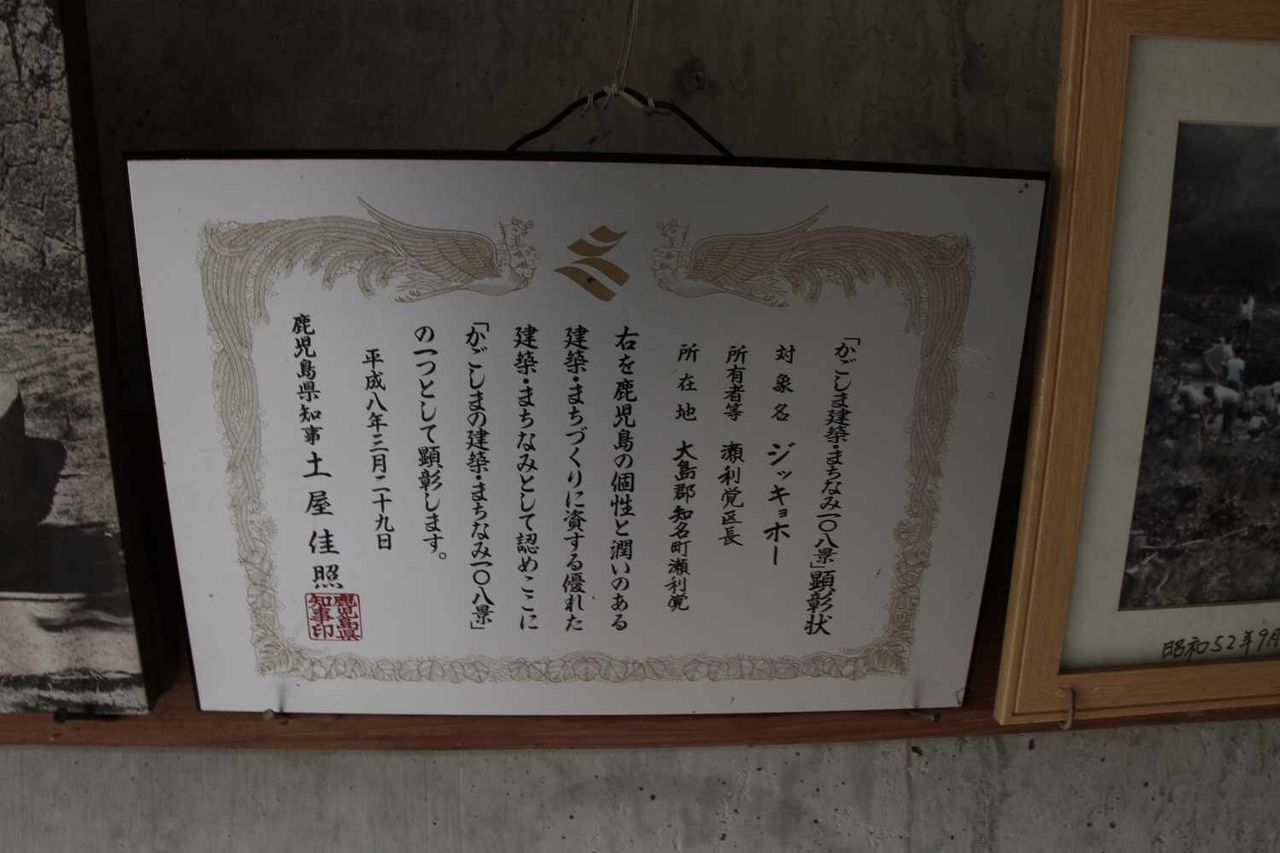 「かごしま建築・まちなみ一〇八景」顕彰状
対象名 ジッキョホー
所有者等 瀬利覚区長
所在地 大島郡知名町瀬利覚
右を鹿児島の個性と潤いのある
建築・まちづくりに資する優れた
建築・まちなみとして認めここに
「かごしまの建築・まちなみ一〇八景」
の一つとして顕彰します。
平成八年三月二十九日
鹿児島県知事 土屋佳照
鹿児島県
知事印
昭和52年9月